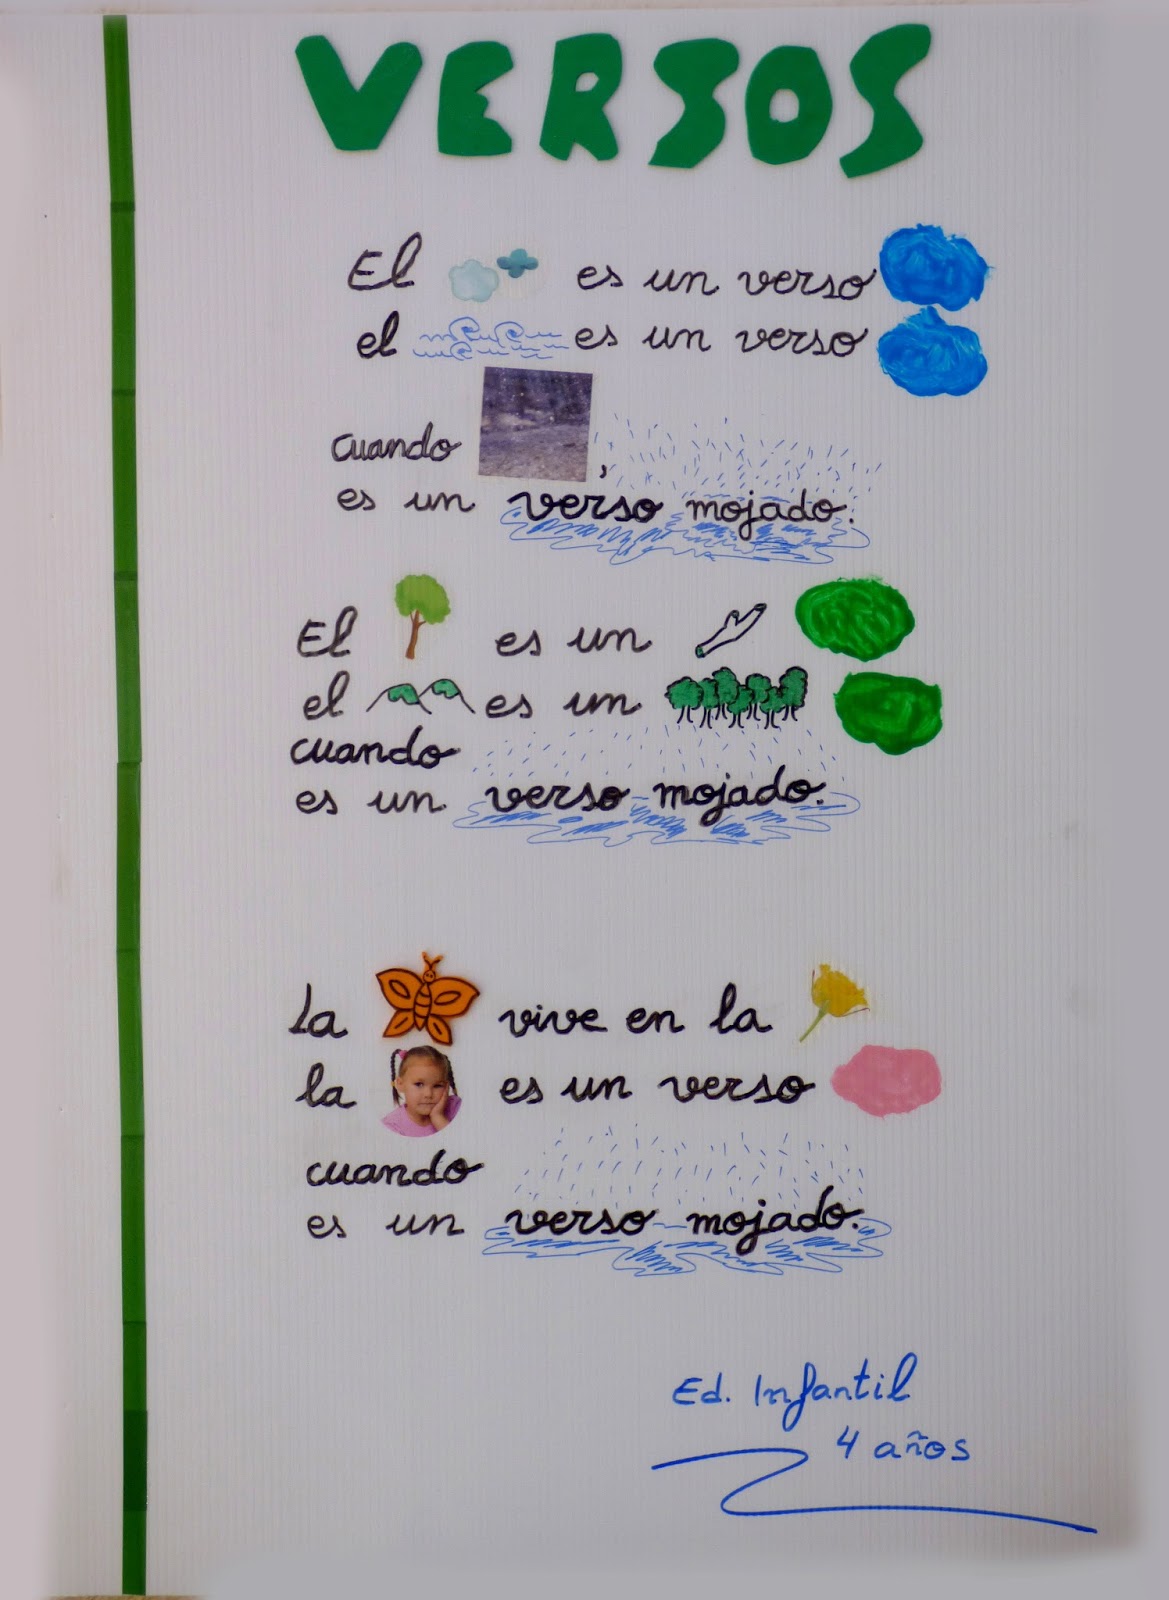 VERSOS
El es un verso
el es un verso
cuando ,
es un verso mojado.
El es un
el es un
cuando
es un verso mojado.
La vive en la
la es un verso
cuando
es un verso mojado.
Ed. Infantil
4 años